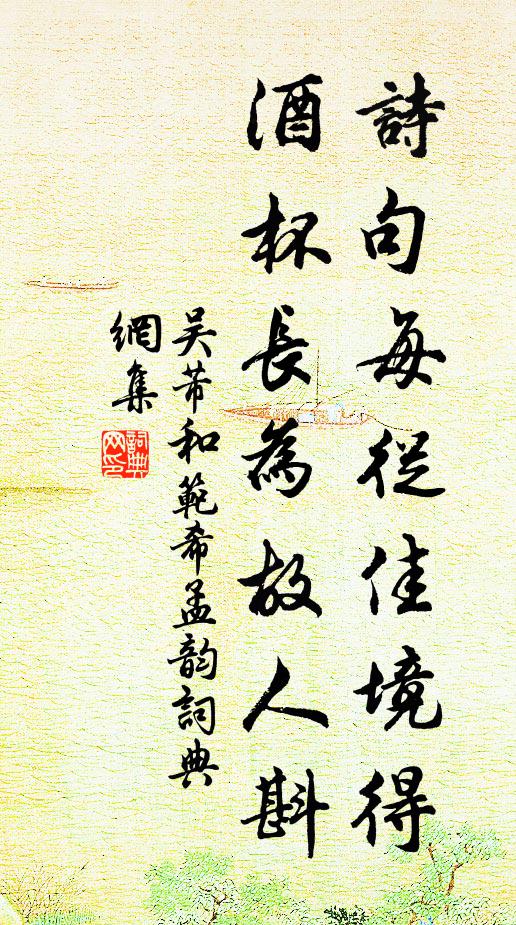 詩句每從佳境得
酒杯長為故人斟
吴芾和範希孟韵詞典
網集
詞典
网印